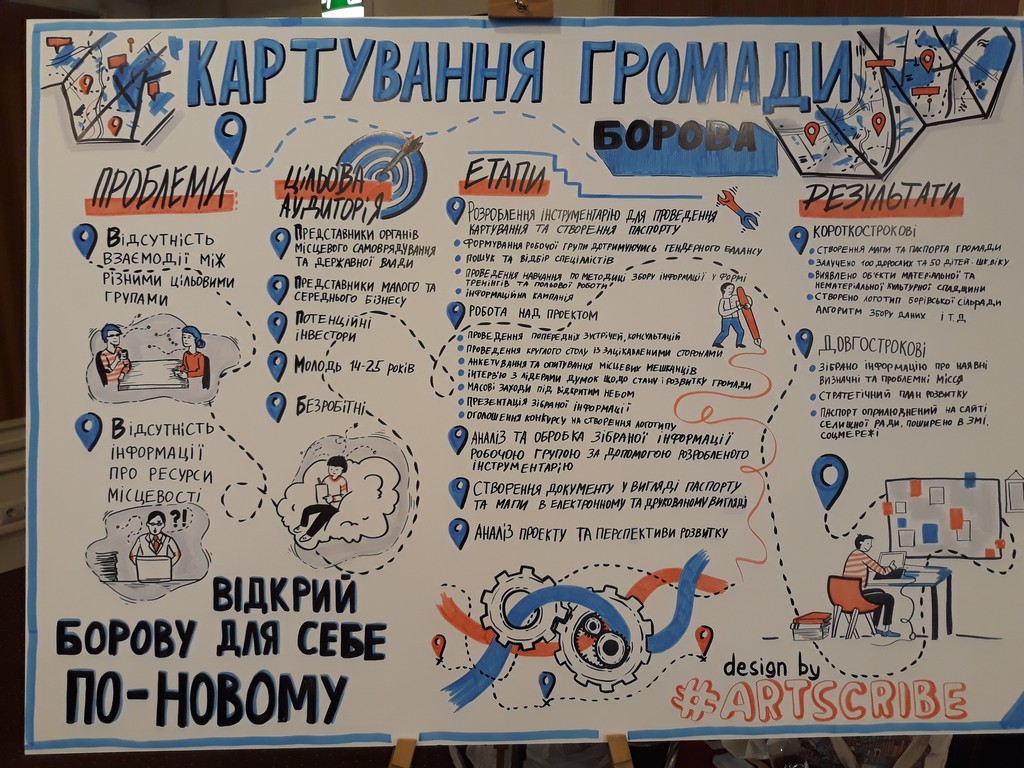 КАРТУВАННЯ ГРОМАДИ
БОРОВА
ПРОБЛЕМИ
ВІДСУТНІСТЬ
ВЗАЄМОДІЇ МІЖ
РІЗНИМИ ЦІЛЬОВИМИ
ГРУПАМИ
ВІДСУТНІСТЬ
ІНФОРМАЦІЇ
ПРО РЕСУРСИ
МІСЦЕВОСТІ
?!
ЦІЛЬОВА
АУДИТОРІЯ
ПРЕДСТАВНИКИ ОРГАНІВ
МІСЦЕВОГО САМОВРЯДУВАННЯ
ТА ДЕРЖАВНОЇ ВЛАДИ
ПРЕДСТАВНИКИ МАЛОГО ТА
СЕРЕДНЬОГО БІЗНЕСУ
ПОТЕНЦІЙНІ
ІНВЕСТОРИ
МОЛОДЬ 14-25 РОКІВ
БЕЗРОБІТНІ
ЕТАПИ
РОЗРОБЛЕННЯ ІНСТРУМЕНТАРІЮ ДЛЯ ПРОВЕДЕННЯ
КАРТУВАННЯ ТА СТВОРЕННЯ ПАСПОРТУ
ФОРМУВАННЯ РОБОЧОЇ ГРУПИ ДОТРИМУЮЧИСЬ ГЕНДЕРНОГО БАЛАНСУ
ПОШУК ТА ВІДБІР СПЕЦІАЛІСТІВ
ПРОВЕДЕННЯ НАВЧАННЯ ПО МЕТОДИЦІ ЗБОРУ ІНФОРМАЦІЇ У ФОРМІ
ТРЕНІНГІВ ТА ПОЛЬОВОЇ РОБОТИ
ІНФОРМАЦІЙНА КАМПАНІЯ
РОБОТА НАД ПРОЕКТОМ
ПРОВЕДЕННЯ ПОПЕРЕДНІХ ЗУСТРІЧЕЙ, КОНСУЛЬТАЦІЙ
ПРОВЕДЕННЯ КРУГЛОГО СТОЛУ ІЗ ЗАЦІКАВЛЕНИМИ СТОРОНАМИ
АНКЕТУВАННЯ ТА ОПИТУВАННЯ МІСЦЕВИХ МЕШКАНЦІВ
ІНТЕРВ'Ю З ЛІДЕРАМИ ДУМОК ЩОДО СТАНУ І РОЗВИТКУ ГРОМАДИ
МАСОВІ ЗАХОДИ ПІД ВІДКРИТИМ НЕБОМ
ПРЕЗЕНТАЦІЯ ЗІБРАНОЇ ІНФОРМАЦІЇ
ОГОЛОШЕННЯ КОНКУРСУ НА СТВОРЕННЯ ЛОГОТИПУ
АНАЛІЗ ТА ОБРОБКА ЗІБРАНОЇ ІНФОРМАЦІЇ
РОБОЧОЮ ГРУПОЮ ЗА ДОПОМОГОЮ РОЗРОБЛЕНОГО
ІНСТРУМЕНТАРІЮ
СТВОРЕННЯ ДОКУМЕНТУ У ВИГЛЯДІ ПАСПОРТУ
ТА МАПИ В ЕЛЕКТРОННОМУ ТА ДРУКОВАНОМУ ВИГЛЯДІ
АНАЛІЗ ПРОЕКТУ ТА ПЕРСПЕКТИВИ РОЗВИТКУ
РЕЗУЛЬТАТИ
КОРОТКОСТРОКОВІ
СТВОРЕННЯ МАПИ ТА ПАСПОРТА ГРОМАДИ
ЗАЛУЧЕНО 100 ДОРОСЛИХ ТА 50 ДІТЕЙ ШК.ВІКУ
ВИЯВЛЕНО ОБ'ЄКТИ МАТЕРІАЛЬНОЇ ТА
НЕМАТЕРІАЛЬНОЇ КУЛЬТУРНОЇ СПАДЩИНИ
СТВОРЕНО ЛОГОТИП БОРІВСЬКОЇ СІЛЬРАДИ
АЛГОРИТМ ЗБОРУ ДАНИХ І Т.Д
ДОВГОСТРОКОВІ
ЗІБРАНО ІНФОРМАЦІЮ ПРО НАЯВНІ
ВИЗНАЧНІ ТА ПРОБЛЕМНІ МІСЦЯ
СТРАТЕГІЧНИЙ ПЛАН РОЗВИТКУ
ПАСПОРТ ОПРИЛЮДНЕНИЙ НА САЙТІ
СЕЛИЩНОЇ РАДИ, ПОШИРЕНО В ЗМІ,
СОЦМЕРЕЖІ
ВІДКРИЙ
БОРОВУ ДЛЯ СЕБЕ
ПО-НОВОМУ
design by
#ARTSCRIBE